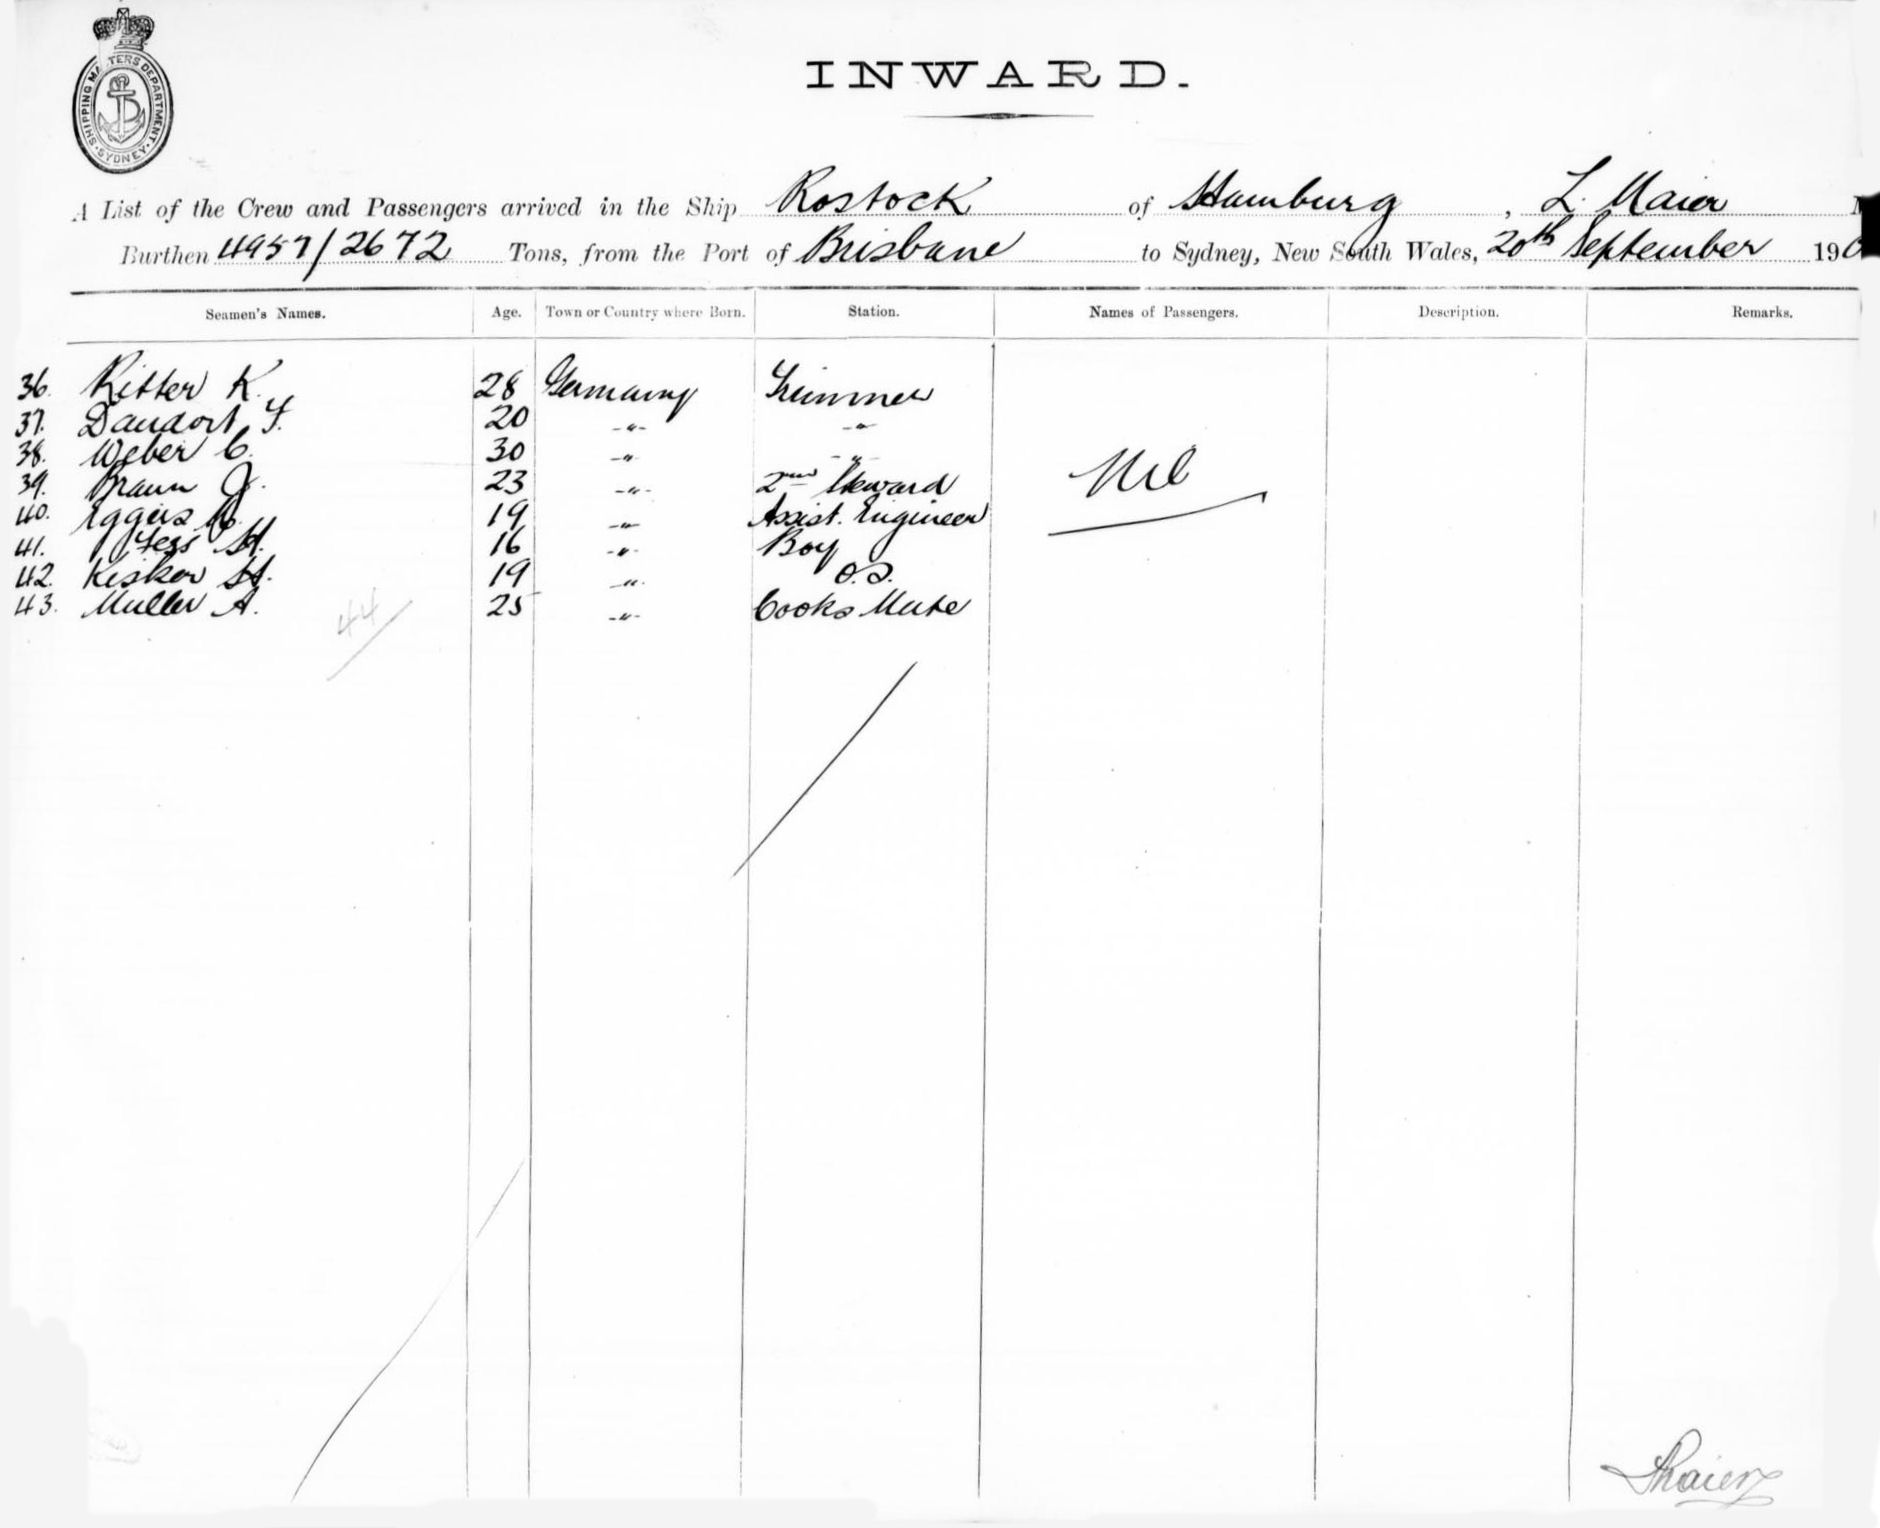 SHIPPING MASTERS DEPARTMENT. SYDNEY.
INWARD.
A List of the Crew and Passengers arrived in the Ship Rostock of Hamburg, L. Maier
Burthen 4957/2672 Tons, from the Port of Brisbane to Sydney, New South Wales, 20th September 190
Seamen's Names. Age. Town or Country where Born. Station. Names of Passengers. Description. Remarks.
36. Ritter K. 28 Germany Trimmer
37. F. 20 -"- -"-
38. Weber C. 30 -"- -"-
39. Braun J. 23 -"- 2nd Steward
40. Eggers 19 -"- Assist. Engineer
41. H. 16 -"- Boy
42. Kisker H. 19 -"- O.S.
43. Muller A. 25 -"- Cooks Mate
Nil
44
LMaier